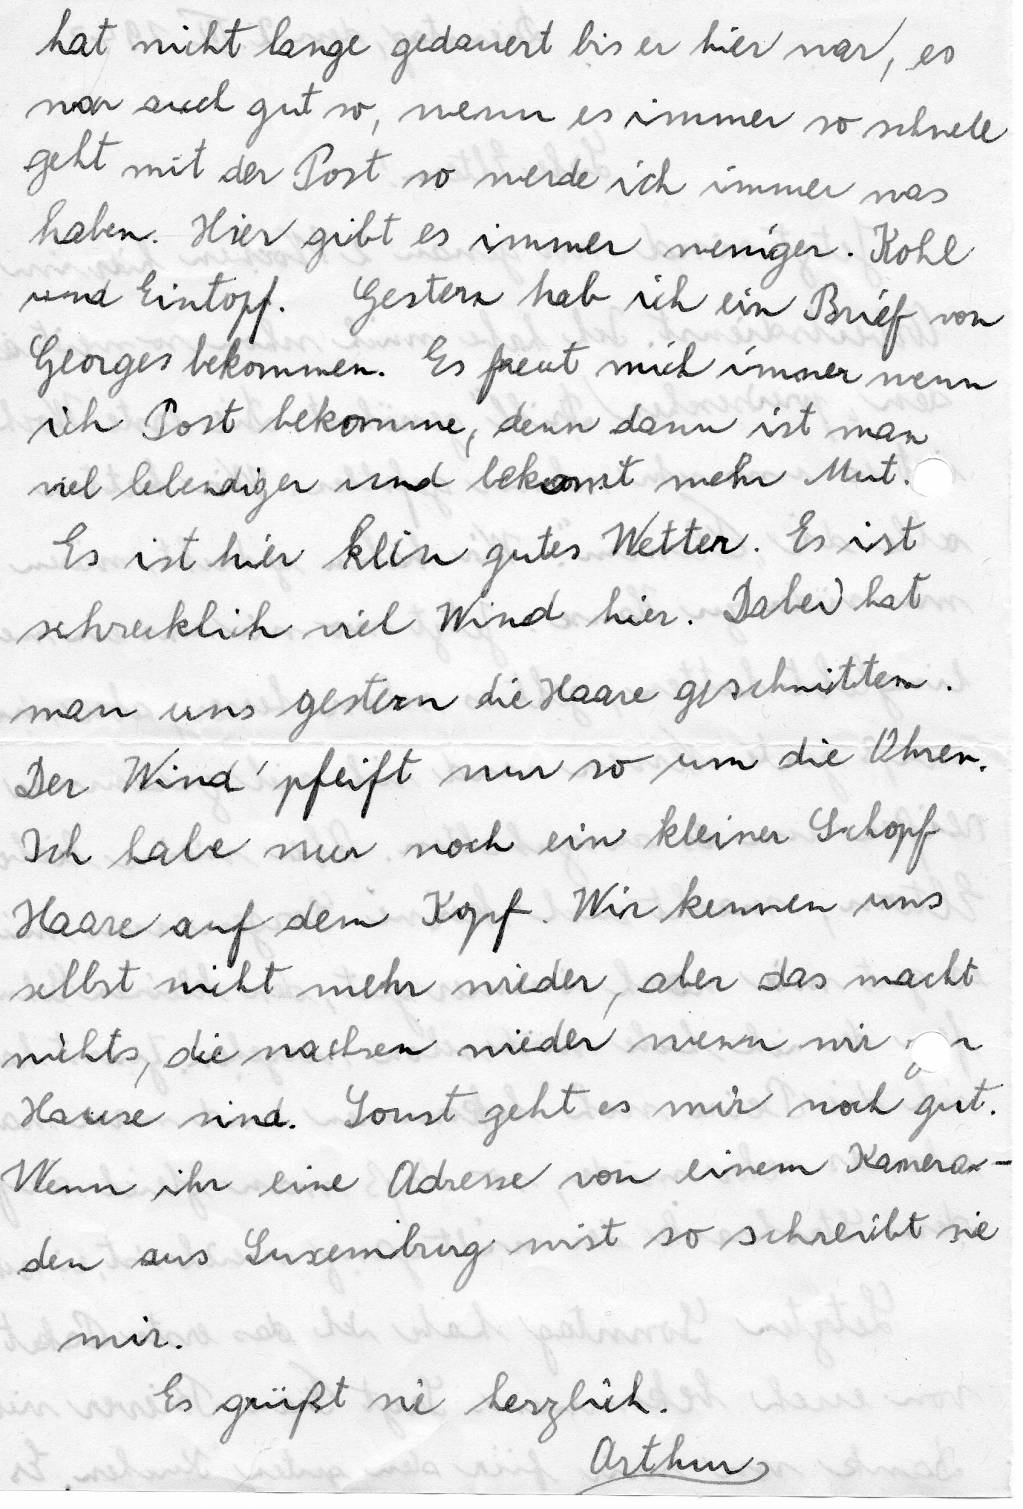 hat nicht lange gedauert bis er hier war, es
war auch gut so, wenn es immer so schnell
geht mit der Post so werde ich immer was
haben. Hier gibt es immer weniger. Kohl
und Eintopf. Gestern hab ich ein Brief von
Georges bekommen. Es freut mich immer wenn
ich Post bekomme, denn dann ist man
viel lebendiger und bekomt mehr Mut.
Es ist hier klein gutes Wetter. Es ist
schrecklich viel Wind hier. Dabei hat
man uns gestern die Haare geschnitten.
Der Wind pfeift nur so um die Ohren.
Ich habe nur noch ein kleiner Schopf
Haare auf dem Kopf. Wir kennen uns
selbst nicht mehr wieder, aber das macht
nichts, die wachsen wieder wenn wir
Hause sind. Sonst geht es mir noch gut.
Wenn ihr eine Adresse von einem Kamera-
den aus Luxemburg wist so schreibt sie
mir.
Es grüßt sie herzlich.
Arthur